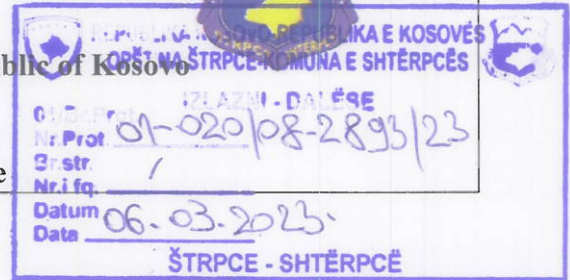 REPUBLIKA KOSOVO-REPUBLIKA E KOSOVËS
OPŠTINA ŠTRPCE-KOMUNA E SHTËRPCËS
blic of Kosovo
IZLAZNI - DALËSE
Nr.Prot. 01-020/08-2893/23
Br.str. /
Nr.i fq.
e
Datum 06-03-2023.
Data
ŠTRPCE - SHTËRPCË